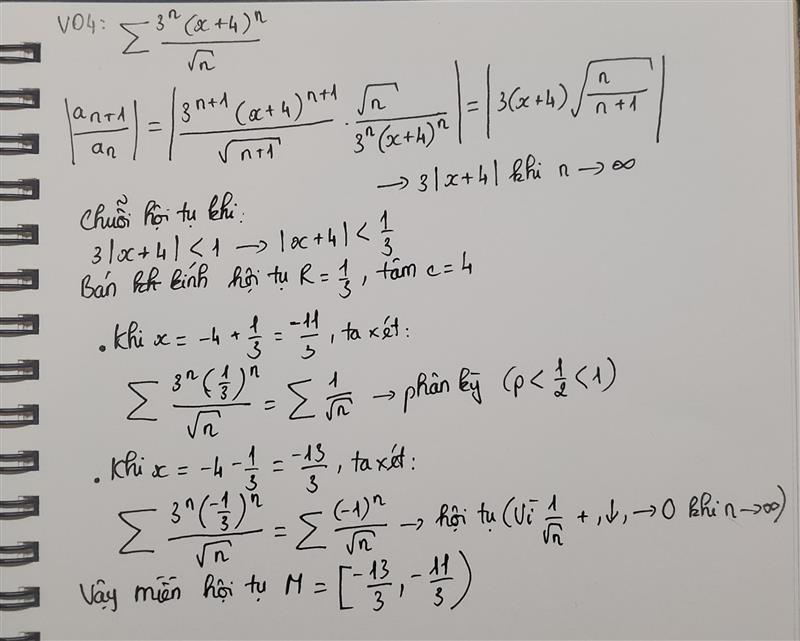 VD4: ∑ 3^n (x+4)^n / √n
|a_{n+1} / a_n| = |3^{n+1} (x+4)^{n+1} / √(n+1) · √n / 3^n (x+4)^n| = |3(x+4) √(n / (n+1))|
→ 3|x+4| khi n → ∞
Chuỗi hội tụ khi:
3|x+4| < 1 → |x+4| < 1/3
Bán kính hội tụ R = 1/3, tâm c = 4
• Khi x = -4 + 1/3 = -11/3, ta xét:
∑ 3^n (1/3)^n / √n = ∑ 1/√n → phân kỳ (p < 1/2 < 1)
• Khi x = -4 - 1/3 = -13/3, ta xét:
∑ 3^n (-1/3)^n / √n = ∑ (-1)^n / √n → hội tụ (Vì 1/√n +, ↓, → 0 khi n → ∞)
Vậy miền hội tụ M = [-13/3, -11/3)